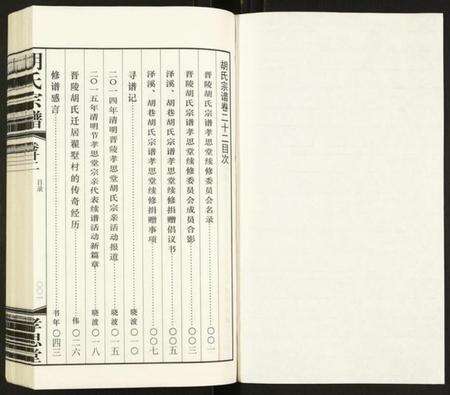 胡氏宗谱卷二十二目次
晋陵胡氏宗谱孝思堂续修委员会名录……〇〇一
晋陵胡氏宗谱孝思堂续修委员会成员合影……〇〇三
泽溪、胡巷胡氏宗谱孝思堂续修捐赠倡议书……〇〇五
泽溪、胡巷胡氏宗谱孝思堂续修捐赠事项……〇〇七
寻谱记……晓波 〇一〇
二〇一四年清明晋陵孝思堂胡氏宗亲活动报道……晓波 〇一五
二〇一五年清明节孝思堂宗亲代表续谱活动新篇章……晓波 〇一八
晋陵胡氏迁居翟墅村的传奇经历……伟 〇二六
修谱感言……书年 〇四三
胡氏宗谱
目录
〇〇一
孝思堂